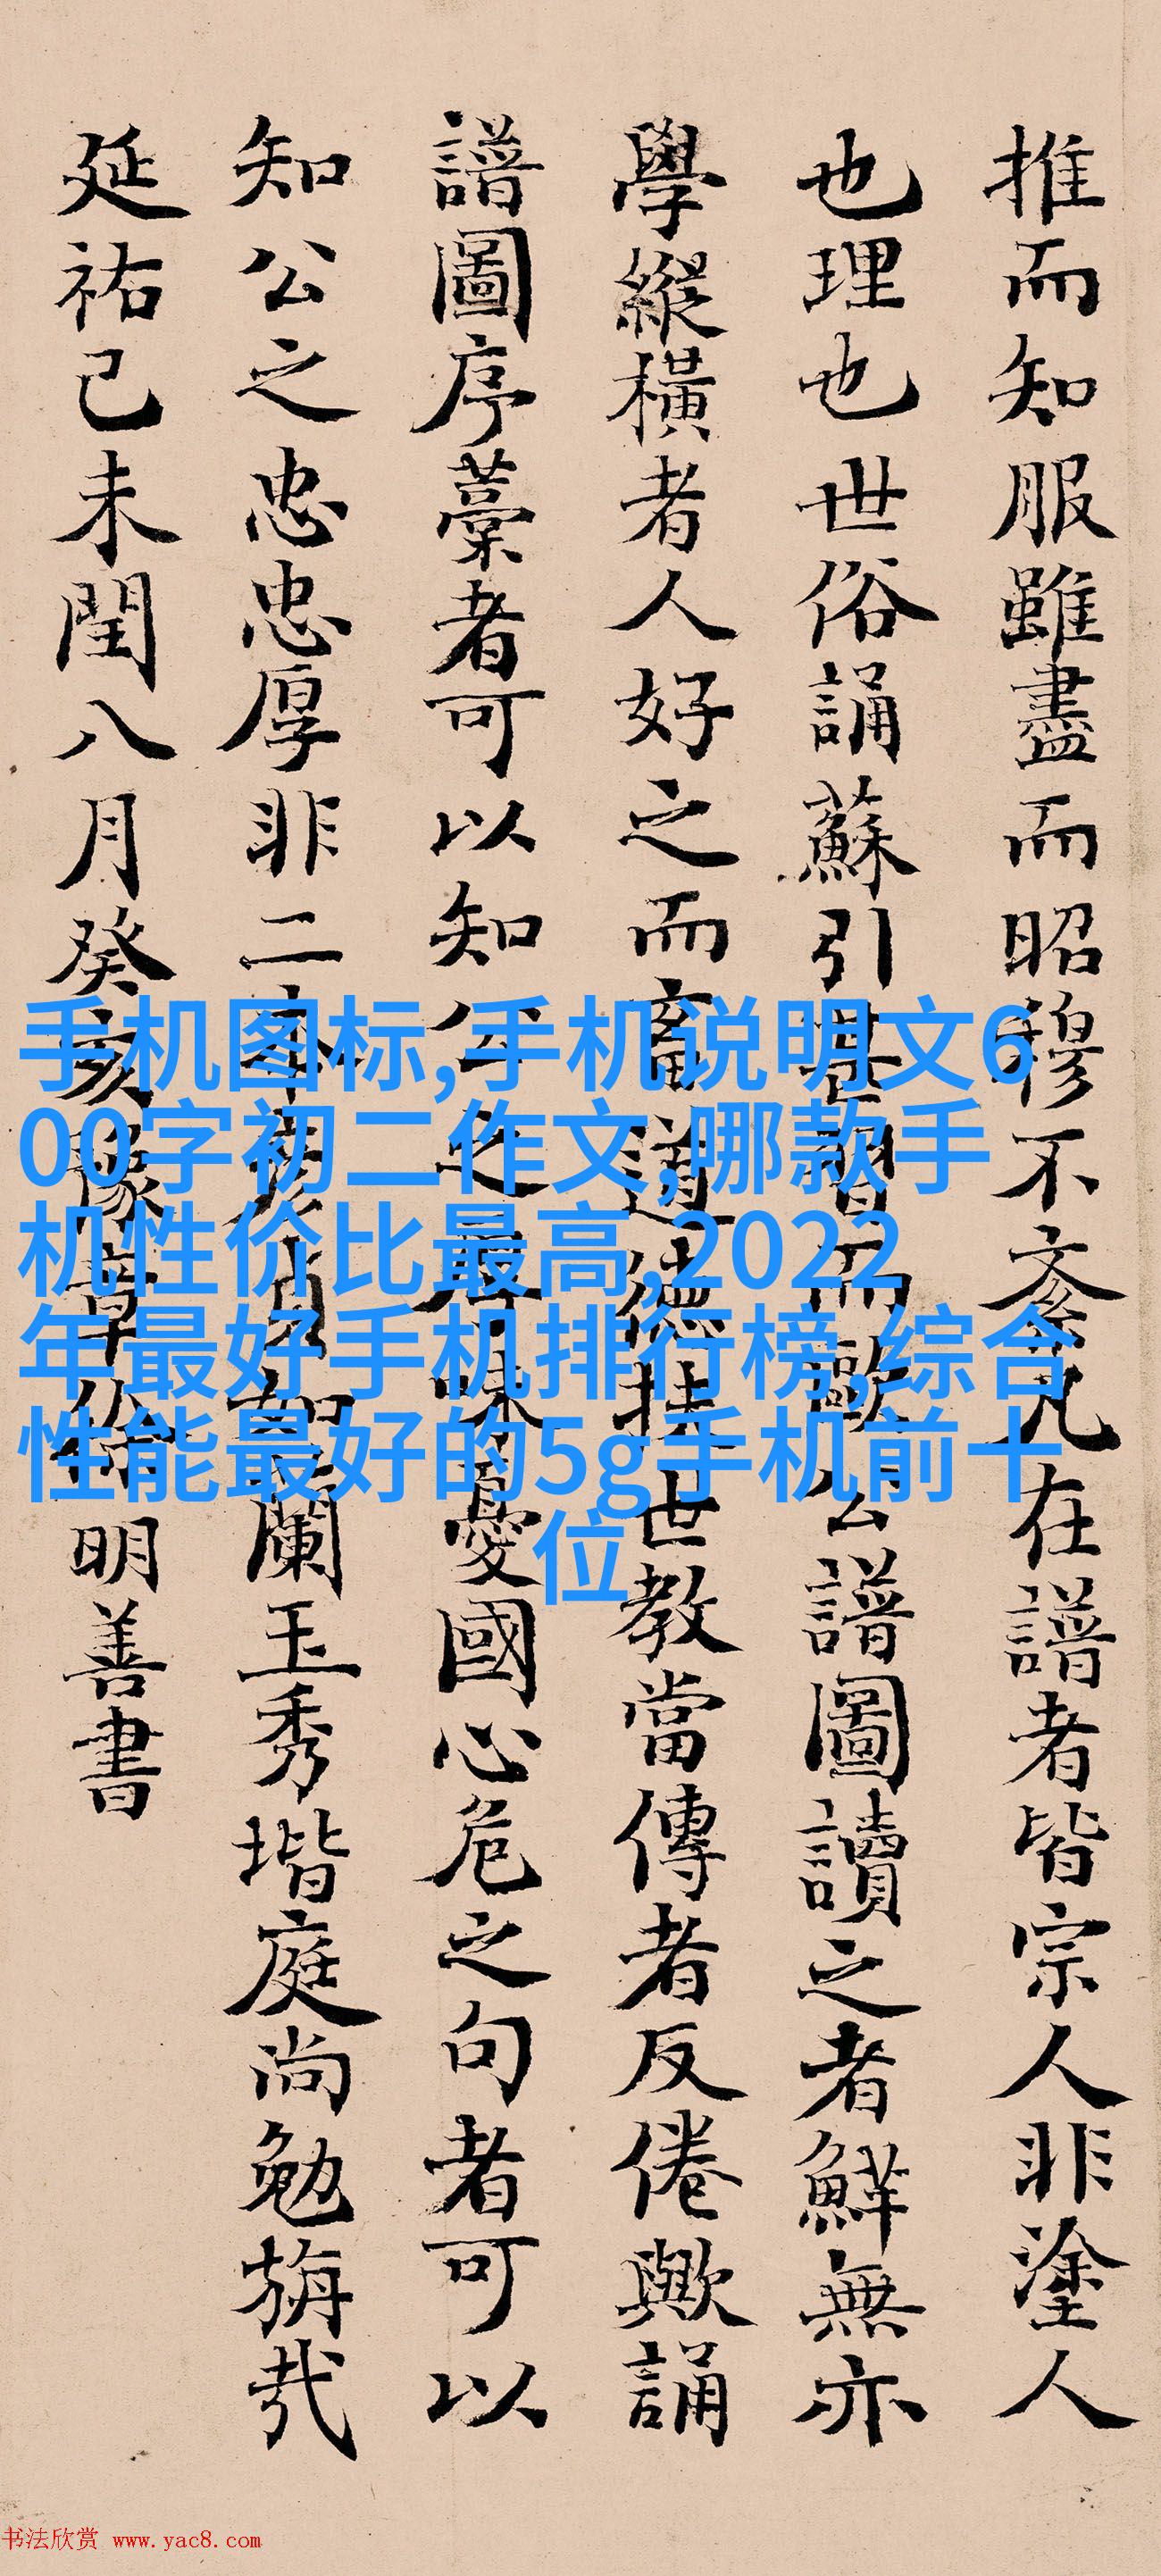 推而知服雖盡而昭穆不紊凡在譜者皆宗人非塗人
也理也世俗誦蘇引甚習而歐公譜圖讀之者鮮無亦
學縱橫者人好之而畜道德扶世教當傳者反倦歟誦
譜圖序藁者可以知公之
憂國心危之句者可以
知公之忠忠厚非二
蘭玉秀堦庭尚勉旃哉
延祐己未閏八月癸亥豫章
明善書
手机图标,手机说明文6
00字初二作文,哪款手
机性价比最高,2022
年最好手机排行榜,综合
性能最好的5g手机前十
位
书法欣赏 www.yac8.com